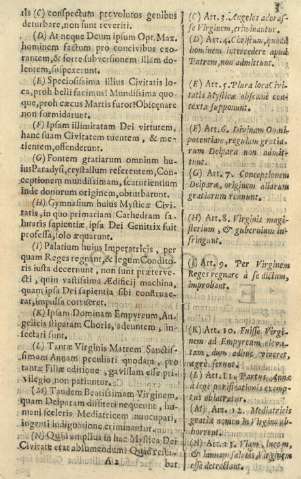 3
als (C) conspectum prevolutos genibus
deturbare, non sunt reveriti.
(D) At neque Deum ipsum Opt. Max.
hominem factum pro concivibus exo-
rantem, & forte subversionem illam do-
lentem, suspexerunt.
(E) Speciosissima illius Civitatis lo-
ca, proh belli facinus! Mundissima quo
que, proh cæcus Martis furor!
non formidarunt.
(F) Ipsam illuminatam Dei virtutem,
hanc suam Civitatem tuentem, & me-
tientem, offenderunt.
(G) Fontem gratiarum omnium hu
ius Paradysi, crystallum referentem, Con-
ceptionem mundissimam, scaturientium
inde donorum originem, obturbarunt.
(H) Gymnasium huius Mysticæ Civi-
tatis, in quo primariam Cathedram sa-
luraris sapientiæ, ipsa Dei Genitrix fuit
professa, solo æquarunt.
(I) Palatium huius Imperatricis, per
quam Reges regnant, & legum Condito-
res iusta decernunt, non sunt præterve-
cti, quin vastissima Ædificij machina,
quam ipsa Dei sapientia sibi construxe-
rat, impulsa corrueret.
(K) Ipsam Dominam Empyreum, An-
gelicis stipatam Choris, adeuntem, in-
sectari sunt.
(L) Tantæ Virginis Matrem Sanctis-
simam Annam peculiari quodam, pro
tantæ Filiæ editione, gavisam esse pri-
vilegio non patiuntur.
(M) Tandem Beatissimam Virginem,
quam Deiparam diffiteri nequeunt, hu-
mani sceleris Mediatricem nuncupari,
ingenti indignatione criminantur.
(N) Quid amplius in hac Mystica Dei
Civitate erat absumendum?
A 2
but
(C) Art. 3. Angelos adoras-
se Virginem, criminantur.
(D) Art. 4. Christum, quatenus
hominem intercedere apud
Patrem, non admittunt.
(E) Art. 5. Plura loca Civi-
tatis Mysticæ obscœnè con-
texta supponunt.
(F) Art. 6. Divinam Omni-
potentiam, regulam gratiæ
Deiparæ non admit-
tunt.
(G) Art. 7. Conceptionem
Deiparæ, originem aliarum
gratiarum renuunt.
(H) Art. 8. Virginis magi-
sterium, & gubernium in-
fringunt.
(I) Art. 9. Per Virginem
Reges regnare à se dictum,
improbant.
(K) Art. 10. Fuisse Virgi-
nem ad Empyreum eleva-
tam, dum adhuc viveret,
ægrè ferunt.
(L) Art. 11. Partus Annæ
à lege purificationis exemp-
tus oblatratur.
(M) Art. 12. Mediatricis
gratiæ nomen in Virgine ab-
horrent.
(N) Art. 13. Viam, lucem,
& humanam salutis, Virginem
esse detrectant.